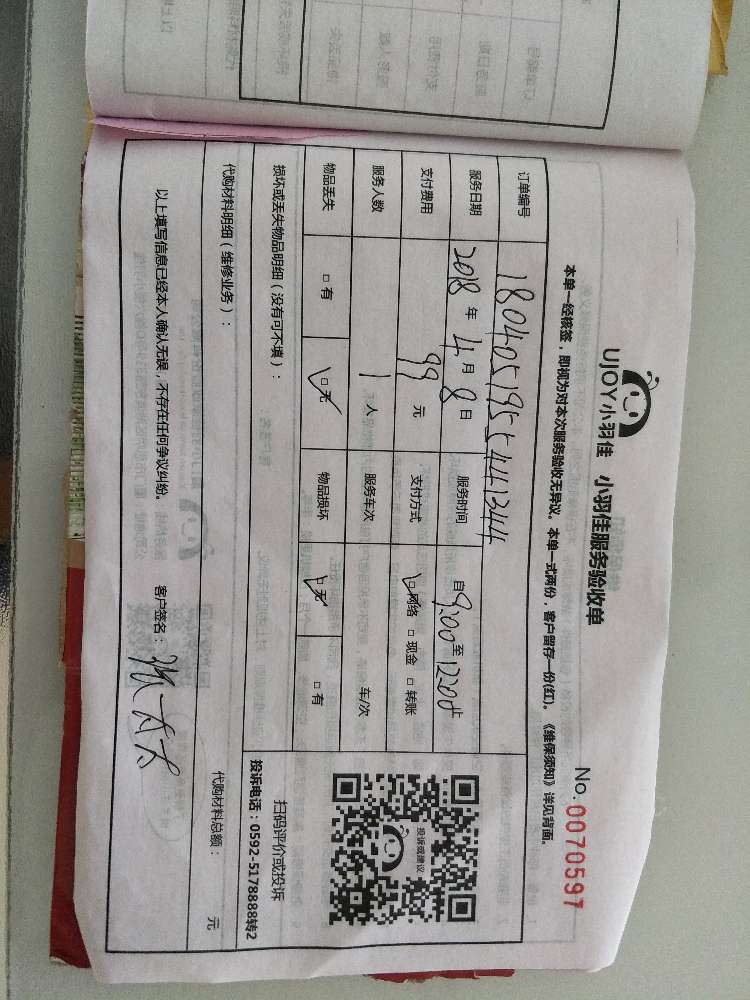 UJOY小羽佳 小羽佳服务验收单
No.0070597
本单一经核签，即视为对本次服务验收无异议。本单一式两份，客户留存一份(红)。《维保须知》详见背面。
订单编号 18040519554441344
服务日期 2018 年 4 月 8 日 服务时间 自 9:00 至 12:00 止
支付费用 99 元 支付方式 ☑网络 □现金 □转账
服务人数 1 人 服务车次 车/次
物品丢失 □有 ☑无 物品损坏 ☑无 □有
投诉或建议
扫码评价或投诉
投诉电话：0592-5178888转2
损坏或丢失物品明细（没有可不填）：
代购材料明细（维修业务）： 代购材料总额： 元
以上填写信息已经本人确认无误，不存在任何争议纠纷。 客户签名：